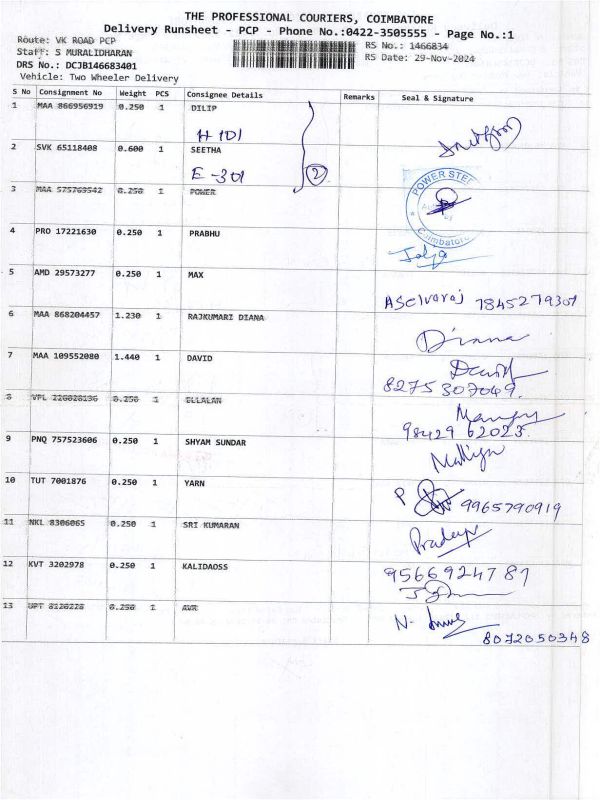 THE PROFESSIONAL COURIERS, COIMBATORE
Delivery Runsheet - PCP - Phone No.:0422-3505555 - Page No.:1
Route: VK ROAD PCP RS No.: 1466834
Staff: S MURALIDHARAN RS Date: 29-Nov-2024
DRS No.: DCJB146683401
Vehicle: Two Wheeler Delivery
S No Consignment No Weight PCS Consignee Details Remarks Seal & Signature
1 MAA 866956919 0.250 1 DILIP
H 101
2 SVK 65118408 0.600 1 SEETHA
E-301 2
3 MAA 575769542 0.250 1 POWER
POWER STEE
Coimbatore
4 PRO 17221630 0.250 1 PRABHU
5 AMD 29573277 0.250 1 MAX
ASelvaraj 7845279301
6 MAA 868204457 1.230 1 RAJKUMARI DIANA
Diana
7 MAA 109552080 1.440 1 DAVID
David
8275307049.
8 VPL 226828136 0.250 1 ELLALAN
98429 62025.
9 PNQ 757523606 0.250 1 SHYAM SUNDAR
10 TUT 7001876 0.250 1 YARN
P 9965790919
11 NKL 8306065 0.250 1 SRI KUMARAN
Pradeep
12 KVT 3202978 0.250 1 KALIDAOSS
9566924781
13 UPT 8120228 0.250 1 AVR
N.
8072050348